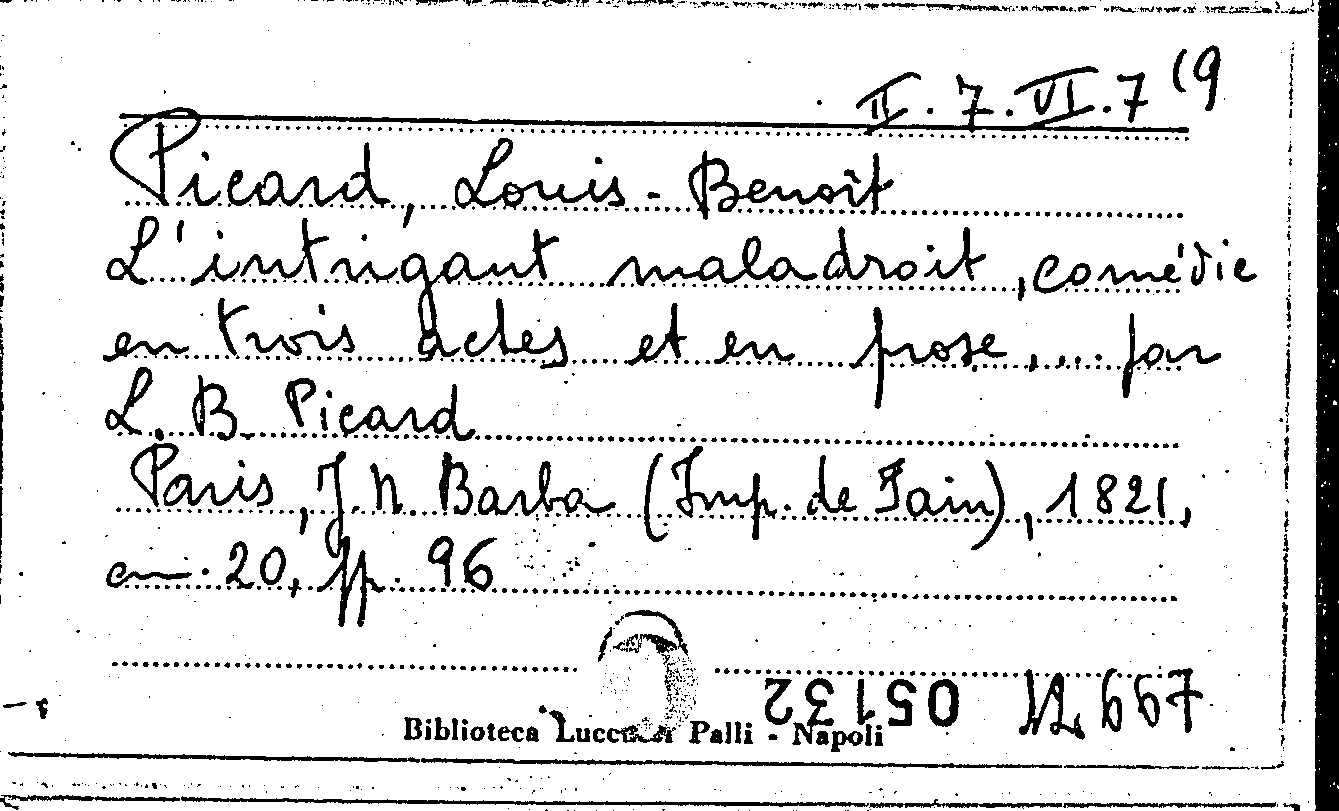 II. 7. VI. 7 (9
Picard, Louis-Benoît
L'intrigant maladroit, comédie
en trois actes et en prose,... par
L. B. Picard
Paris, J. N. Barba (Imp. de Fain), 1821,
cm. 20, pp. 96
05132
Biblioteca Lucchesi Palli - Napoli